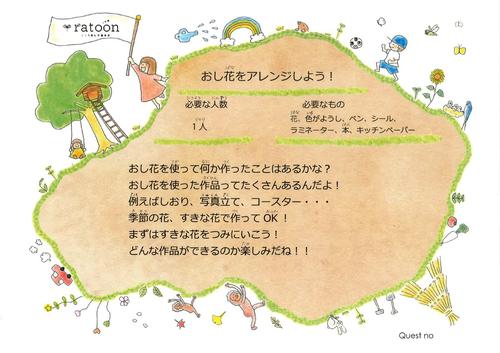 ratoon
おし花をアレンジしよう！
必要な人数
必要なもの
1人
花、色がようし、ペン、シール、
ラミネーター、本、キッチンペーパー
おし花を使って何か作ったことはあるかな？
おし花を使った作品ってたくさんあるんだよ！
例えばしおり、写真立て、コースター・・・
季節の花、すきな花で作ってOK！
まずはすきな花をつみにいこう！
どんな作品ができるのか楽しみだね！！
Quest no